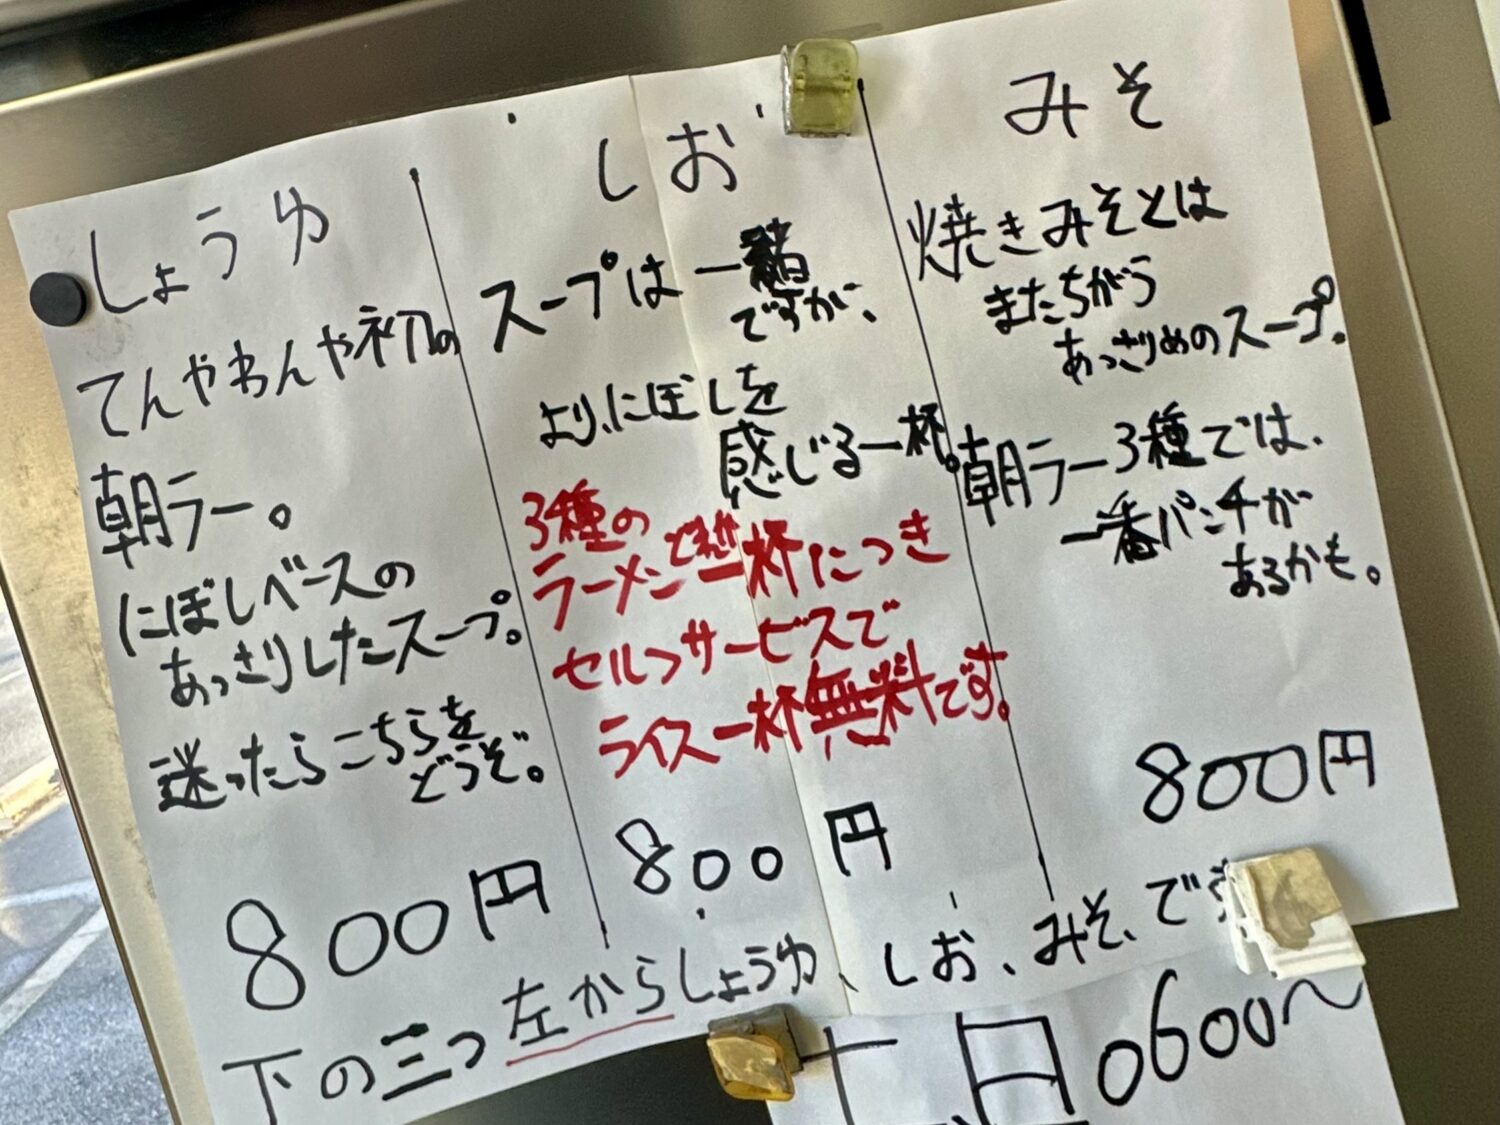 しょうゆ
てんやわんや初の
朝ラー。
にぼしベースの
あっさりしたスープ。
迷ったらこちらを
どうぞ。
800円
しお
スープは一緒
ですが、
より、にぼしを
感じる一杯。
3種の
ラーメンどれも一杯につき
セルフサービスで
ライス一杯無料です。
800円
みそ
焼きみそとは
またちがう
あっさりめのスープ。
朝ラー3種では、
一番パンチが
あるかも。
800円
下の三つ左からしょうゆ、しお、みそ、です
土日0600〜